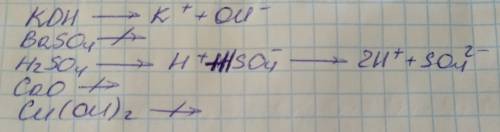 KOH → K⁺ + OH⁻
BaSO₄ ↛
H₂SO₄ → H⁺ + HSO₄⁻ → 2H⁺ + SO₄²⁻
CaO ↛
Cu(OH)₂ ↛